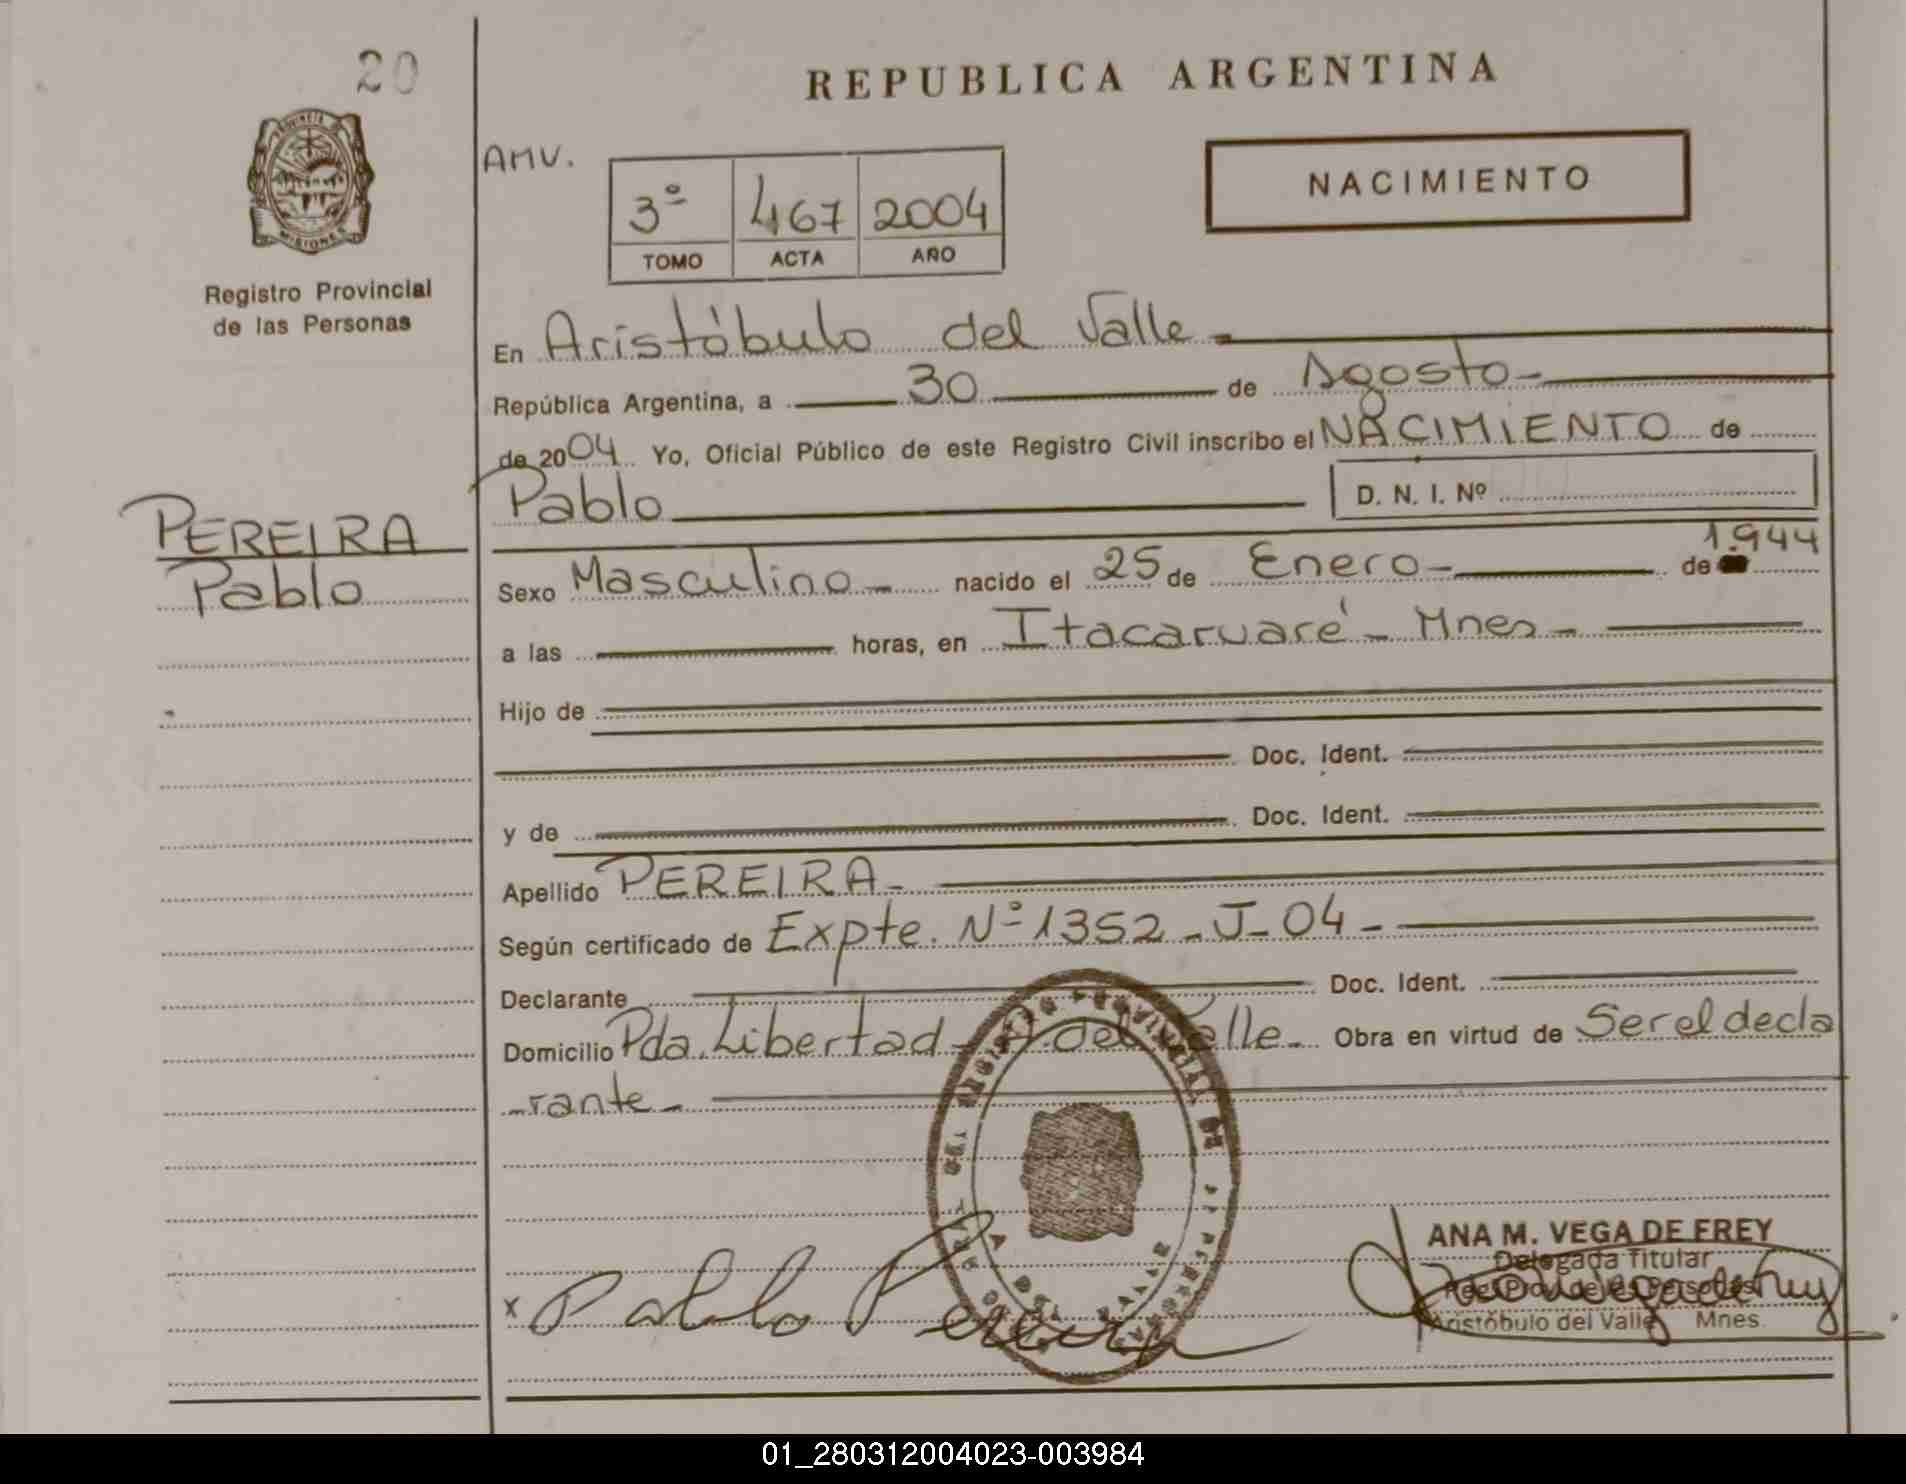 20
REPUBLICA ARGENTINA
PROVINCIA DE
MISIONES
Registro Provincial
de las Personas
AMV.
3º 467 2004
TOMO ACTA AÑO
NACIMIENTO
En Aristóbulo del Valle
República Argentina, a 30 de Agosto
de 2004 Yo, Oficial Público de este Registro Civil inscribo el NACIMIENTO de
Pablo D. N. I. Nº
PEREIRA
Pablo
1.944
Sexo Masculino nacido el 25 de Enero de
a las horas, en Itacaruaré - Mnes
Hijo de
Doc. Ident.
y de Doc. Ident.
Apellido PEREIRA
Según certificado de Expte. Nº 1352 - J - 04
Declarante Doc. Ident.
Domicilio Pda. Libertad - A. del Valle - Obra en virtud de Ser el decla
-rante
ANA M. VEGA DE FREY
Delegada Titular
Aristóbulo del Valle Mnes.
x Pablo Pereira
01_280312004023-003984